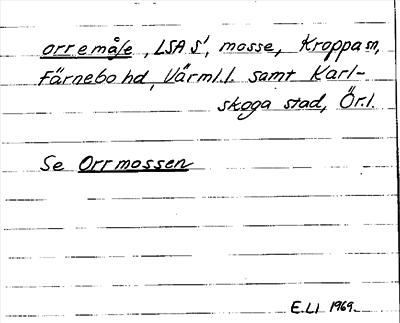 orremåſe, LSA S', mosse, Kroppa sn,
Färnebo hd, Värml.l. samt Karl-
skoga stad, Ör.l.
Se Orrmossen
E.LI 1969.